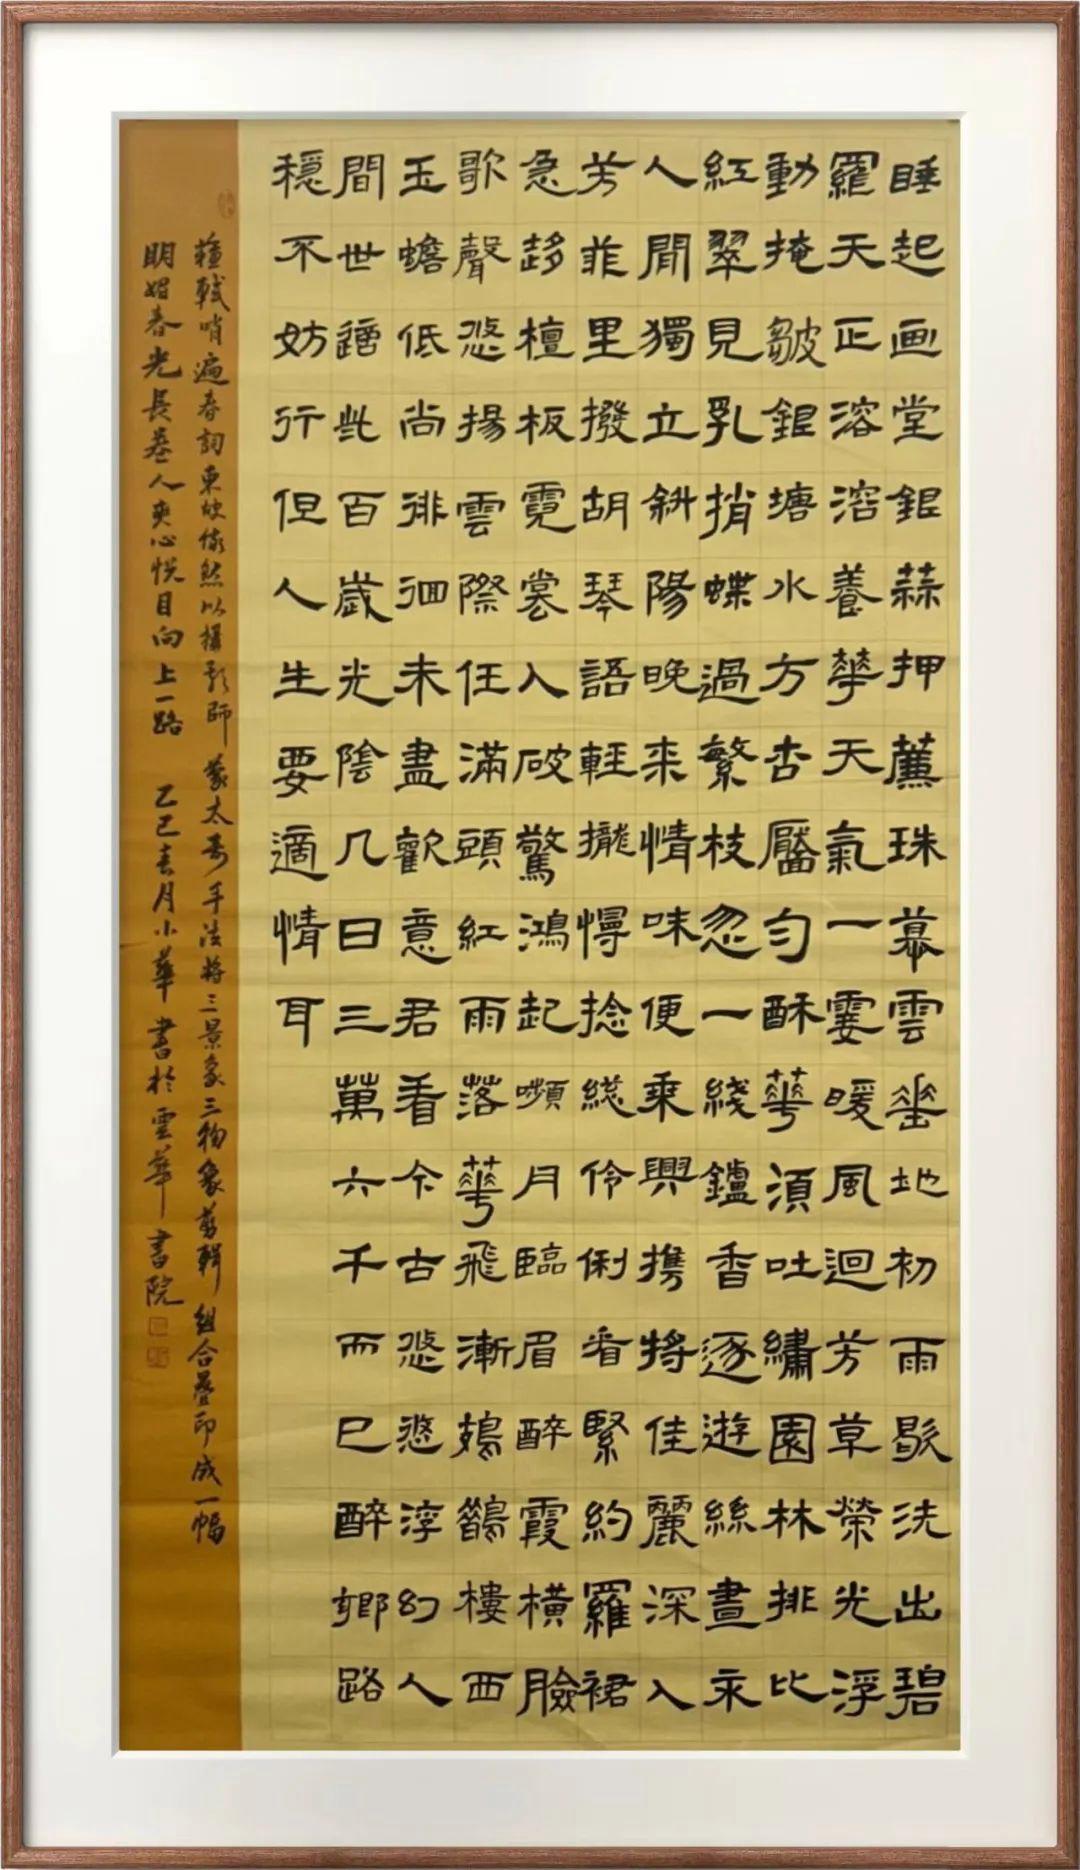 睡起画堂銀蒜押簾珠幕雲垂地初雨歇洗出碧
羅天正溶溶養華天氣一霎暖風迴芳草榮光浮
動掩皺銀塘水方杏靨勻酥華須吐繡園林排比
紅翠見乳捎蝶過繁枝忽一綫鑪香逐遊絲晝永
人間獨立斜陽晚来情味便乘興携將佳麗深入
芳菲里撥胡琴語輕攏慢捻総伶俐看緊約羅裙
急趍檀板霓裳入破驚鴻起嚬月臨眉醉霞橫臉
歌聲悠揚雲際任滿頭紅雨落華飛漸鳷鵲樓西
玉蟾低尚徘徊未盡歡意君看今古悠悠浮幻人
間世這此百歲光陰几日三萬六千而已醉鄉路
穩不妨行但人生要適情耳
蘇軾哨遍春詞東坡依然以攝影師蒙太奇手法將三景象三物象剪輯組合疊印成一幅
明媚春光長卷人爽心悦目向上一路 乙巳春月小華書於雲華書院